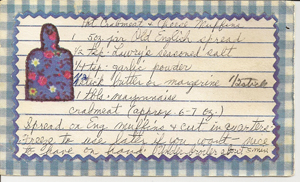 Hot Crabmeat & Cheese Muffins
1 5oz jar Old English spread
1/2 tsp. Lawry's seasoned salt
1/4 tsp. garlic powder
stick butter or margerine
1 tbls. mayonnaise
crabmeat (approx. 6-7 oz.)
Spread on Eng. muffins & cut in quarters
Freeze to use later if you want. Nice
to have on hand. Broiler about 5 min